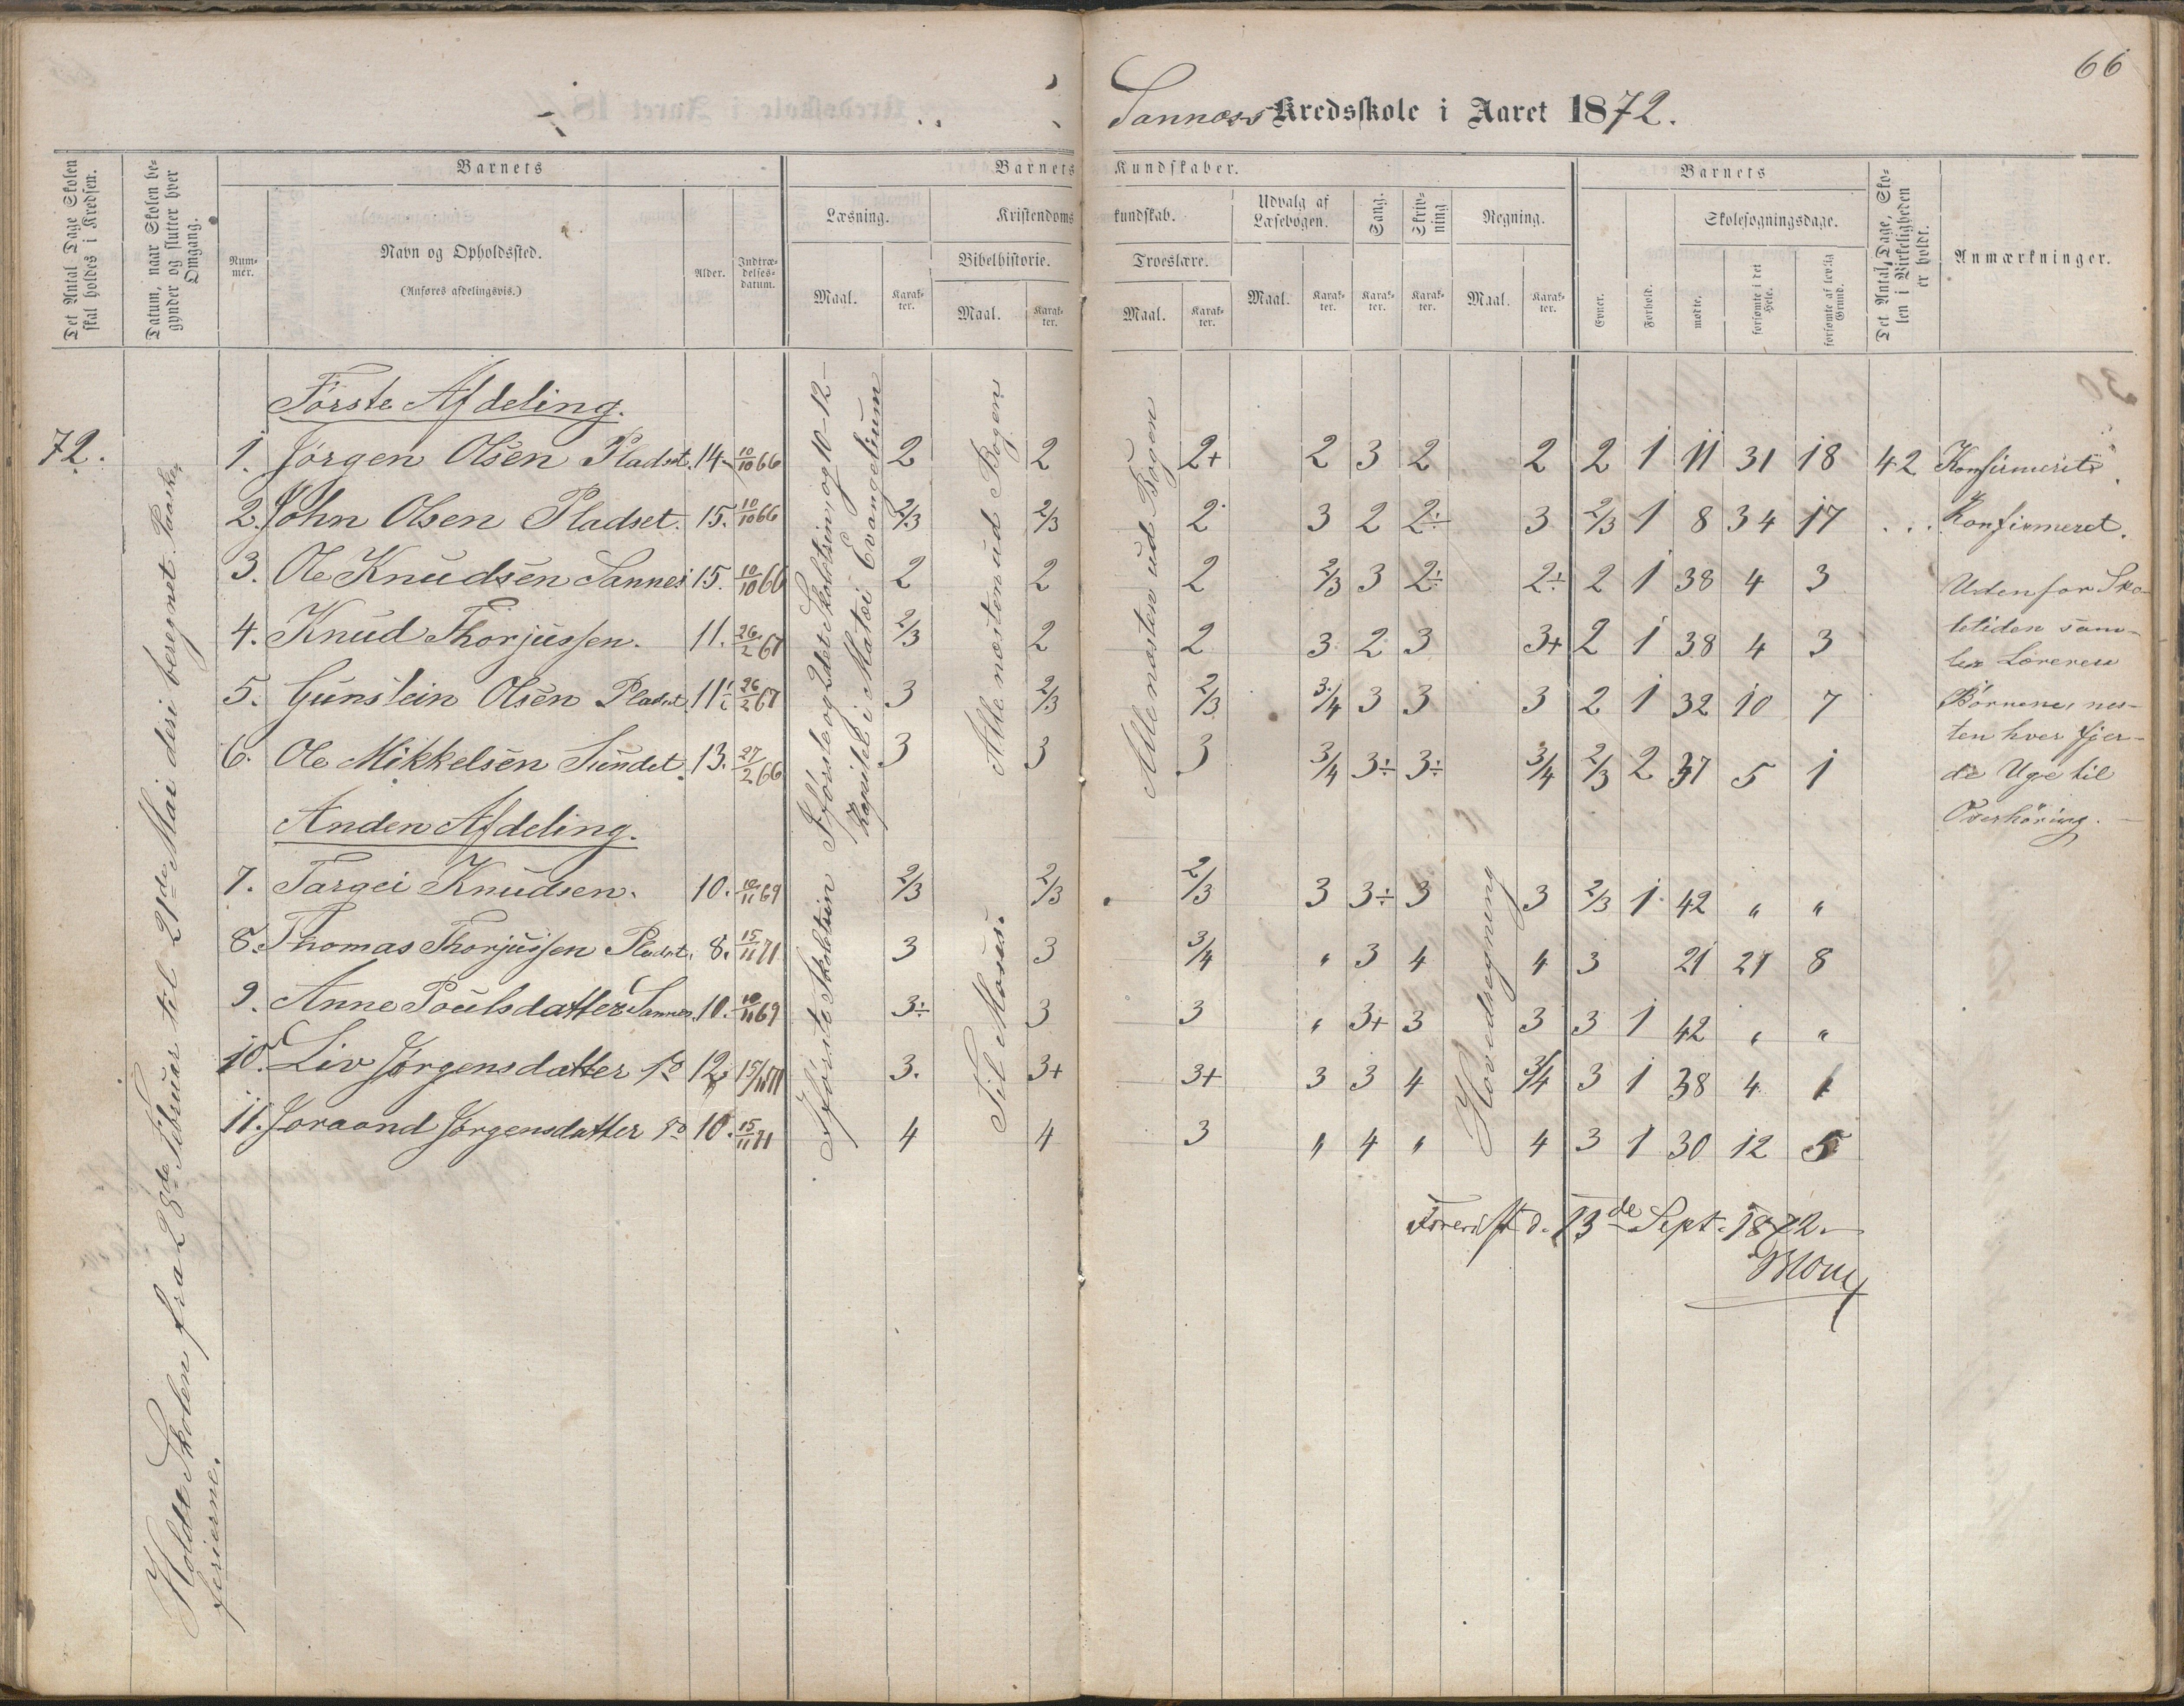 66
Sannæss Kredsskole i Aaret 1872.
Det Antal Dage Skolen skal holdes i Kredsen.
Datum, naar Skolen begynder og slutter hver Omgang.
Barnets
Nummer.
Navn og Opholdssted.
(Anføres afdelingsvis.)
Alder.
Indtrædelsesdatum.
Barnets Kundskaber.
Læsning.
Maal.
Karakter.
Kristendomskundskab.
Bibelhistorie.
Maal.
Karakter.
Troeslære.
Maal.
Karakter.
Udvalg af Læsebogen.
Maal.
Karakter.
Sang.
Karakter.
Skrivning
Karakter.
Regning.
Maal.
Karakter.
Barnets
Evner.
Forhold.
Skolesøgningsdage.
mødte.
forsømte i det Hele.
forsømte af lovlig Grund.
Det Antal Dage, Skolen i Virkeligheden er holdt.
Anmærkninger.
72.
Holdt Skolen fra 28de Februar til 21de Mai deri beregnet Paaske
ferierne.
Første Afdeling.
1. Jørgen Olsen Pladset. 14 10/10 66 2 2 2+ 2 3 2 2 2 1 11 31 18 42 Konfirmeret
2. John Olsen Pladset. 15. 10/10 66 2/3 2/3 2 3 2 2÷ 3 2/3 1 8 34 17 . . . Konfirmeret.
3. Ole Knudsen Sannes 15. 10/10 66 2 2 2 2/3 3 2÷ 2÷ 2 1 38 4 3
4. Knud Thorjussen. 11. 26/2 67 2/3 2 2 3 2 3 3+ 2 1 38 4 3
5. Gunstein Olsen Pladset 11 26/2 67 3 2/3 2/3 3/4 3 3 3 2 1 32 10 7
6. Ole Mikkelsen Sundet. 13. 27/2 66 3 3 3 3/4 3÷ 3÷ 3/4 2/3 2 37 5 1
Udenfor Sko-
letiden sam-
ler Læreren
Børnene, nes-
ten hver fjer-
de Uge til
Overhøring.
første og 2det Skoletrin og 10-12-
Kapitel i Matæi Evangelium
Alle næsten ud Bogen
Alle næsten ud Bogen
Anden Afdeling.
7. Targei Knudsen. 10. 10/11 69 2/3 2/3 2/3 3 3÷ 3 3 2/3 1 42 " "
8. Thomas Thorjussen Pladset. 8. 15/11 71 3 3 3/4 " 3 4 4 3 21 21 8
9. Anne Poulsdatter Sannes. 10. 10/11 69 3÷ 3 3 " 3+ 3 3 3 1 42 " "
10. Liv Jørgensdatter do 12. 15/11 71 3. 3+ 3+ 3 3 4 3/4 3 1 38 4 1
11. Joraand Jørgensdatter do 10. 15/11 71 4 4 3 " 4 " 4 3 1 30 12 5
første Skoletrin
Til Moses.
Hovedregning
Forevist d. 13de Sept. 1872.
Blom